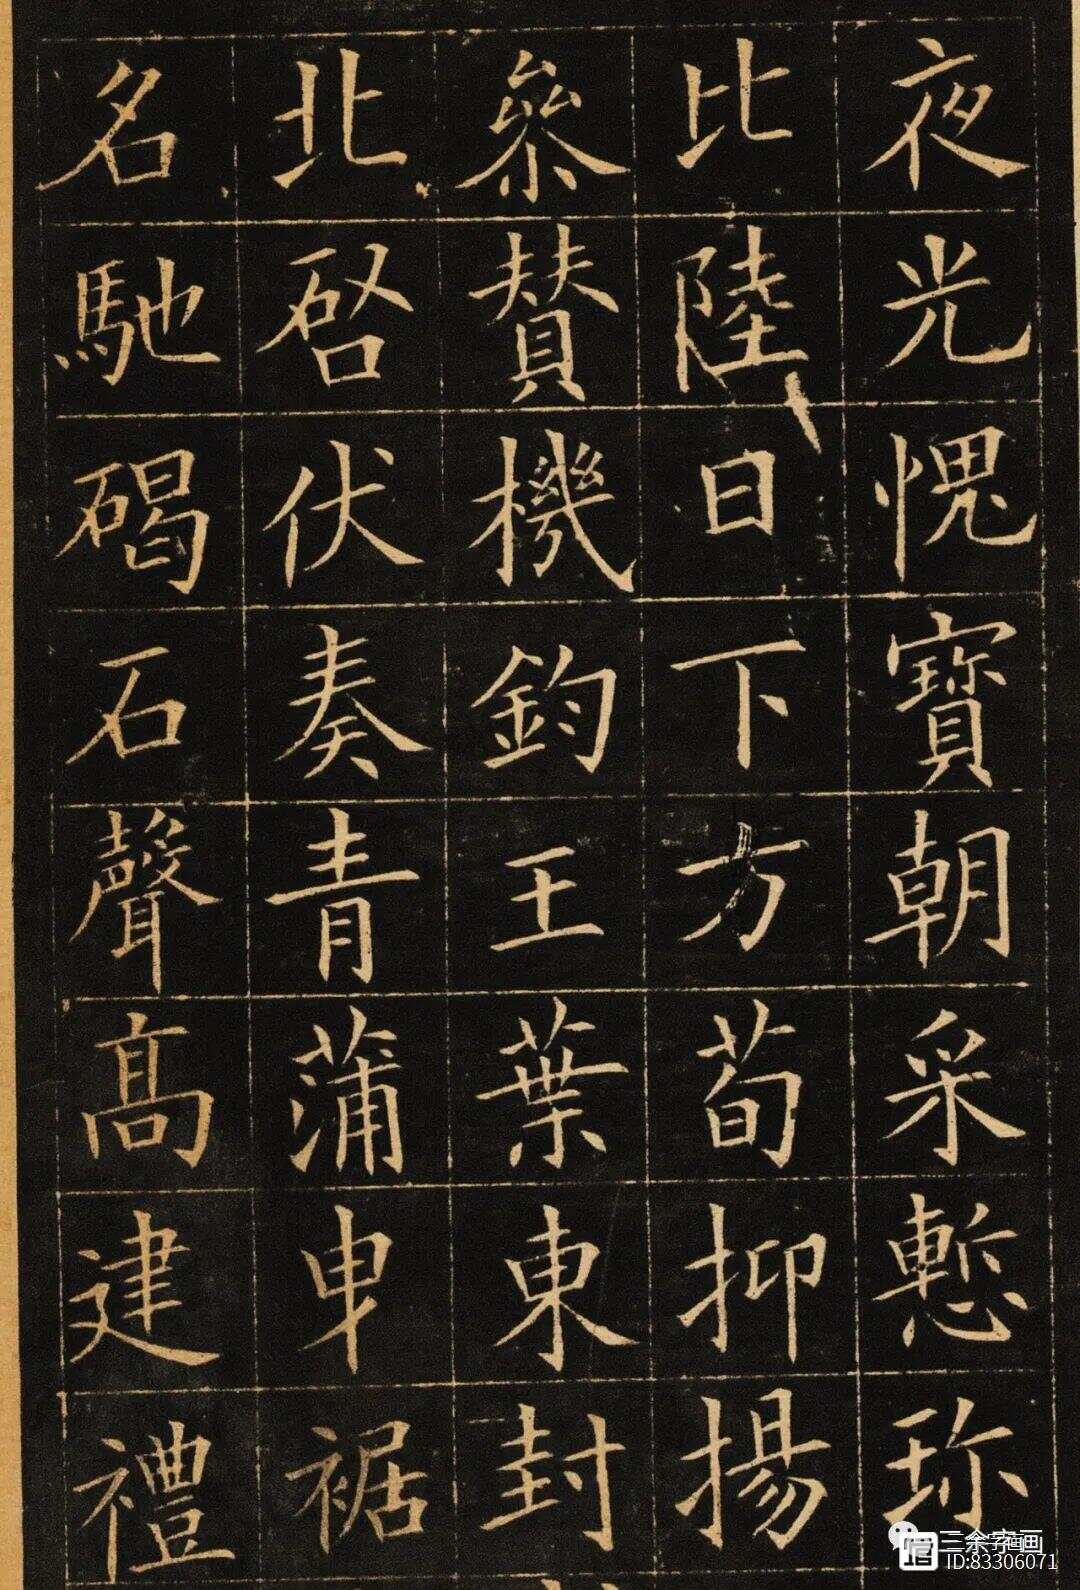 夜光愧寶朝采慙珎
比陸日下方荀抑揚
叅賛機鈞王葉東封
北啓伏奏青蒲曳裾
名馳碣石聲髙建禮
三余字画
ID:83306071